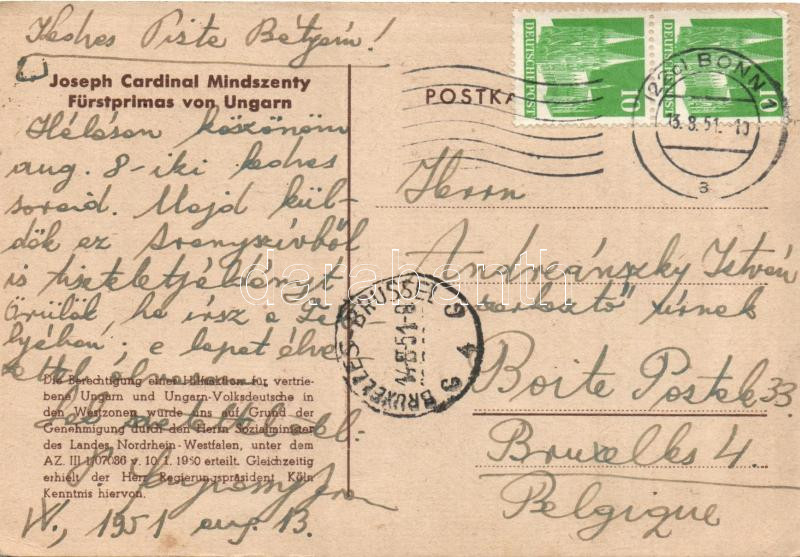 Kedves Piste Bátyám!
Joseph Cardinal Mindszenty
Fürstprimas von Ungarn
Hálásan köszönöm
aug. 8-iki kedves
soraid. Majd kül-
dök az Aranyszívből
is tiszteletpéldányt
Örülök ha írsz a
; e lapot élve-
Die Berechtigung einer Hilfsaktion für vertrie-
bene Ungarn und Ungarn-Volksdeutsche in
den Westzonen wurde uns auf Grund der
Genehmigung durch den Herrn Sozialminister
des Landes Nordrhein-Westfalen, unter dem
AZ. III 1/07086 v. 10. 1. 1950 erteilt. Gleichzeitig
erhielt der Herr Regierungspräsident Köln
Kenntnis hiervon.
W., 1951 aug. 13.
POSTKA
DEUTSCHE POST
10
DEUTSCHE POST
10
BONN
13.8.51.-10
a
BRUXELLES-BRUSSEL
14-8-51-8
Herrn
Andreánszky István
úrnek
Boite Postale 33
Bruxelles 4.
Belgique
darabanth